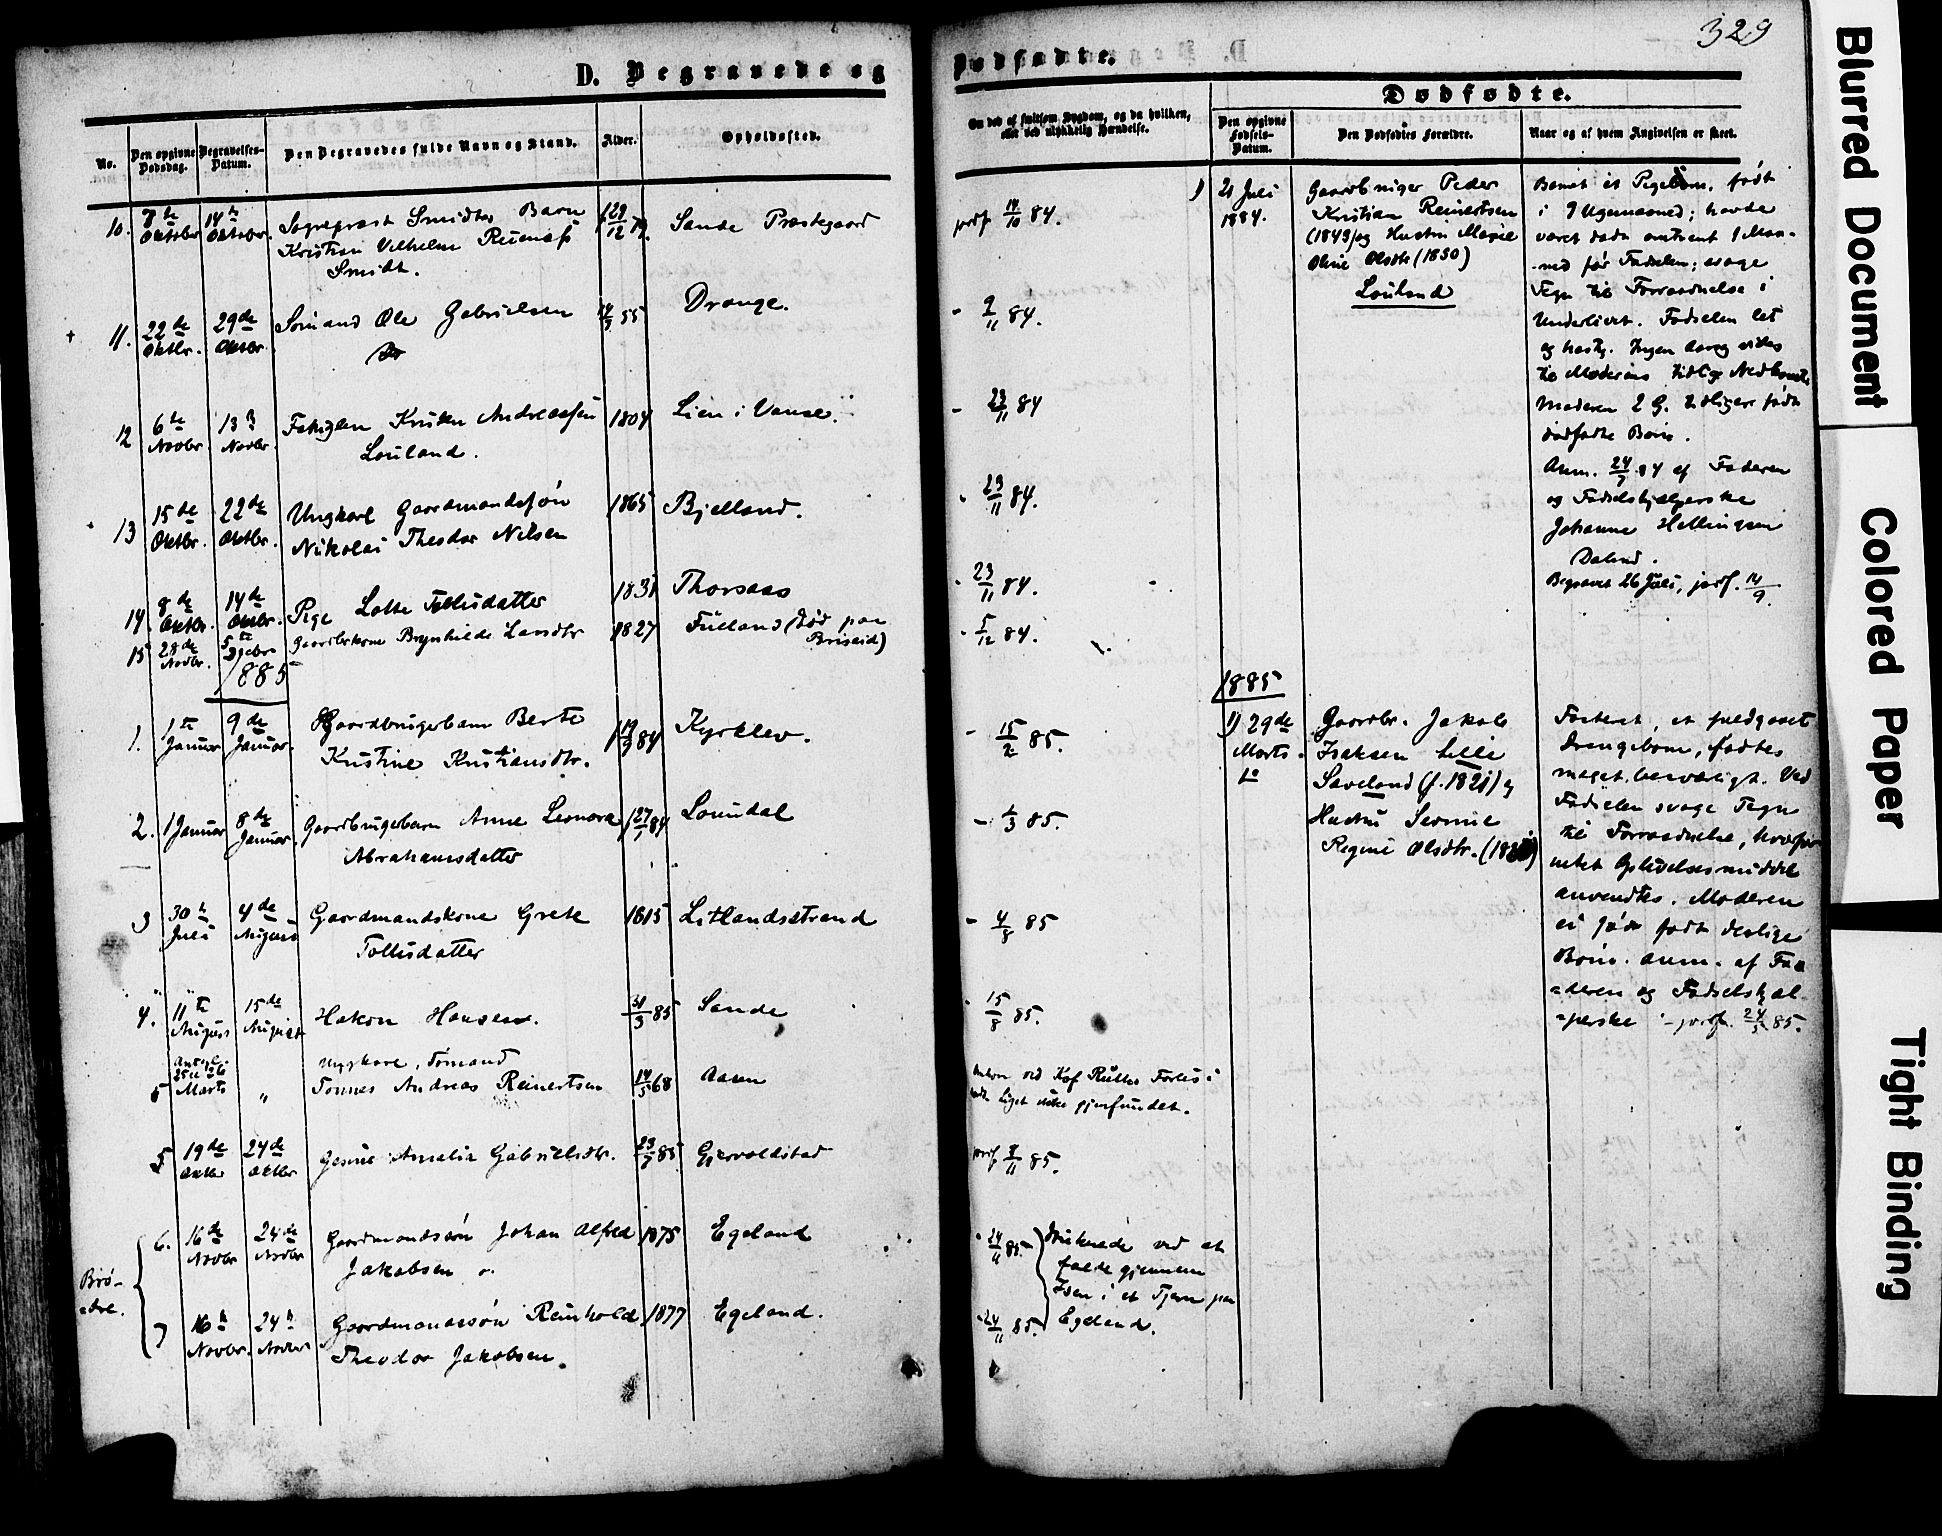 329
D. Begravede og
Dødfødte.
No.
Den opgivne Dødsdag.
Begravelses-Datum.
Den Begravedes fulde Navn og Stand.
Alder.
Opholdssted.
Om død af smitsom Sygdom, og da hvilken,
eller ved ulykkelig Hændelse.
Dødfødte.
Den opgivne Fødsels-Datum.
Den Dødfødtes Forældre.
Naar og af hvem Angivelsen er skeet.
10. 7de Oktober 14de Oktober. Sogneprest Smidths Barn 29/12 79. Sande Præstegaard jordf 14/10 84.
Kristian Vilhelm
Smidt.
11. 22de Oktbr. 29de Oktbr Sømand Ole Gabrielsen 55 Drange. - 2/11 84.
12 6te Novbr 13 Novbr. Andreassen 1804 Lien i Vanse. - 23/11 84
Louland.
13 15de Oktbr. 22de Oktbr. Ungkarl Gaardmandssøn 1865 Bjelland. - 23/11 84.
Nikolai Theodor Nilsen
14. 8de Oktbr. 14de Oktbr. Pige Lotte Tollisdatter 1831 Thorsaas - 23/11 84.
15 28de Novbr. 5te Gaardbrkone Brynhilde 1827 (død paa - 5/12 84.
Briseid)
1885
1. 1te Januar 9de Januar. Gaardbrugerbarn Berte 84 Kyrklev. - 15/2 85.
Kristine Kristiansdtr.
2. 1 Januar 8de Januar. Gaardbrugerbarn Anne Leonora 84 - 1/3 85.
Abrahamsdatter
3 30te Juli 4de August Gaardmandskone Grete 1815 Litlandsstrand - 4/8 85
Tollisdatter
4. 11te August 15de August Hakon Hansen. 31/3 85 Sande - 15/8 85.
Ungkarl, Sømand
5 25 26 Marts " Tønnes Andreas Reinertsen 14/5 68 Aasen
Liget ikke gjenfundet.
5 19de Oktbr 24de Oktbr Gabrielsdtr. 23/7 85 Gjervoldstad jordf 8/11 85.
Brødre.
6. 16de Novbr 24de Novbr Gaardmandssøn Johan Alfred 1875 Egeland - 24/11 85.
Jakobsen
7 16de Novbr. 24de Novbr Gaardmandssøn Reinhold 1877 Egeland. - 24/11 85.
Theodor Jakobsen.
Druknede ved at
falde gjennem
Isen i et Tjern paa
Egeland.
1) 21 Juli
1884.
Gaardbruger Peder
Kristian Reinertsen
(1843) og Hustru
Olene Olsdtr (1850)
Louland
Barnet et Pigebarn, født
i 9 Ugemaaned; havde
været dødt omtrent 1 Maa-
-ned før Fødselen; svage
Tegn til Forraadnelse i
Underlivet. Fødselen let
og hastig. Ingen Aarsag vides
til Moderens tidlige
Moderen 2 G. tidligere født
dødfødte Børn.
Anm. 24/7 84 af Faderen
og Fødselshjælperske
Johanne
Begravet 26 Juli, jordf. 14/9.
1885
1) 29de
Marts.
Gaardbr. Jakob
Isaksen Lille
Saveland (f. 1821) og
Hustru
Regine Olsdtr.
Fosteret, et fuldbaaret
Drengebarn, fødtes
meget besværligt. Ved
Fødselen svage Tegn
til Forraadnelse, hvorfor
intet Oplivelsesmiddel
anvendtes. Moderen
ei før født deslige
Børn. Anm. af Fa-
=deren og Fødselshjæl-
=perske - jordf. 24/5 85.
Blurred Document
Colored Paper
Tight Binding